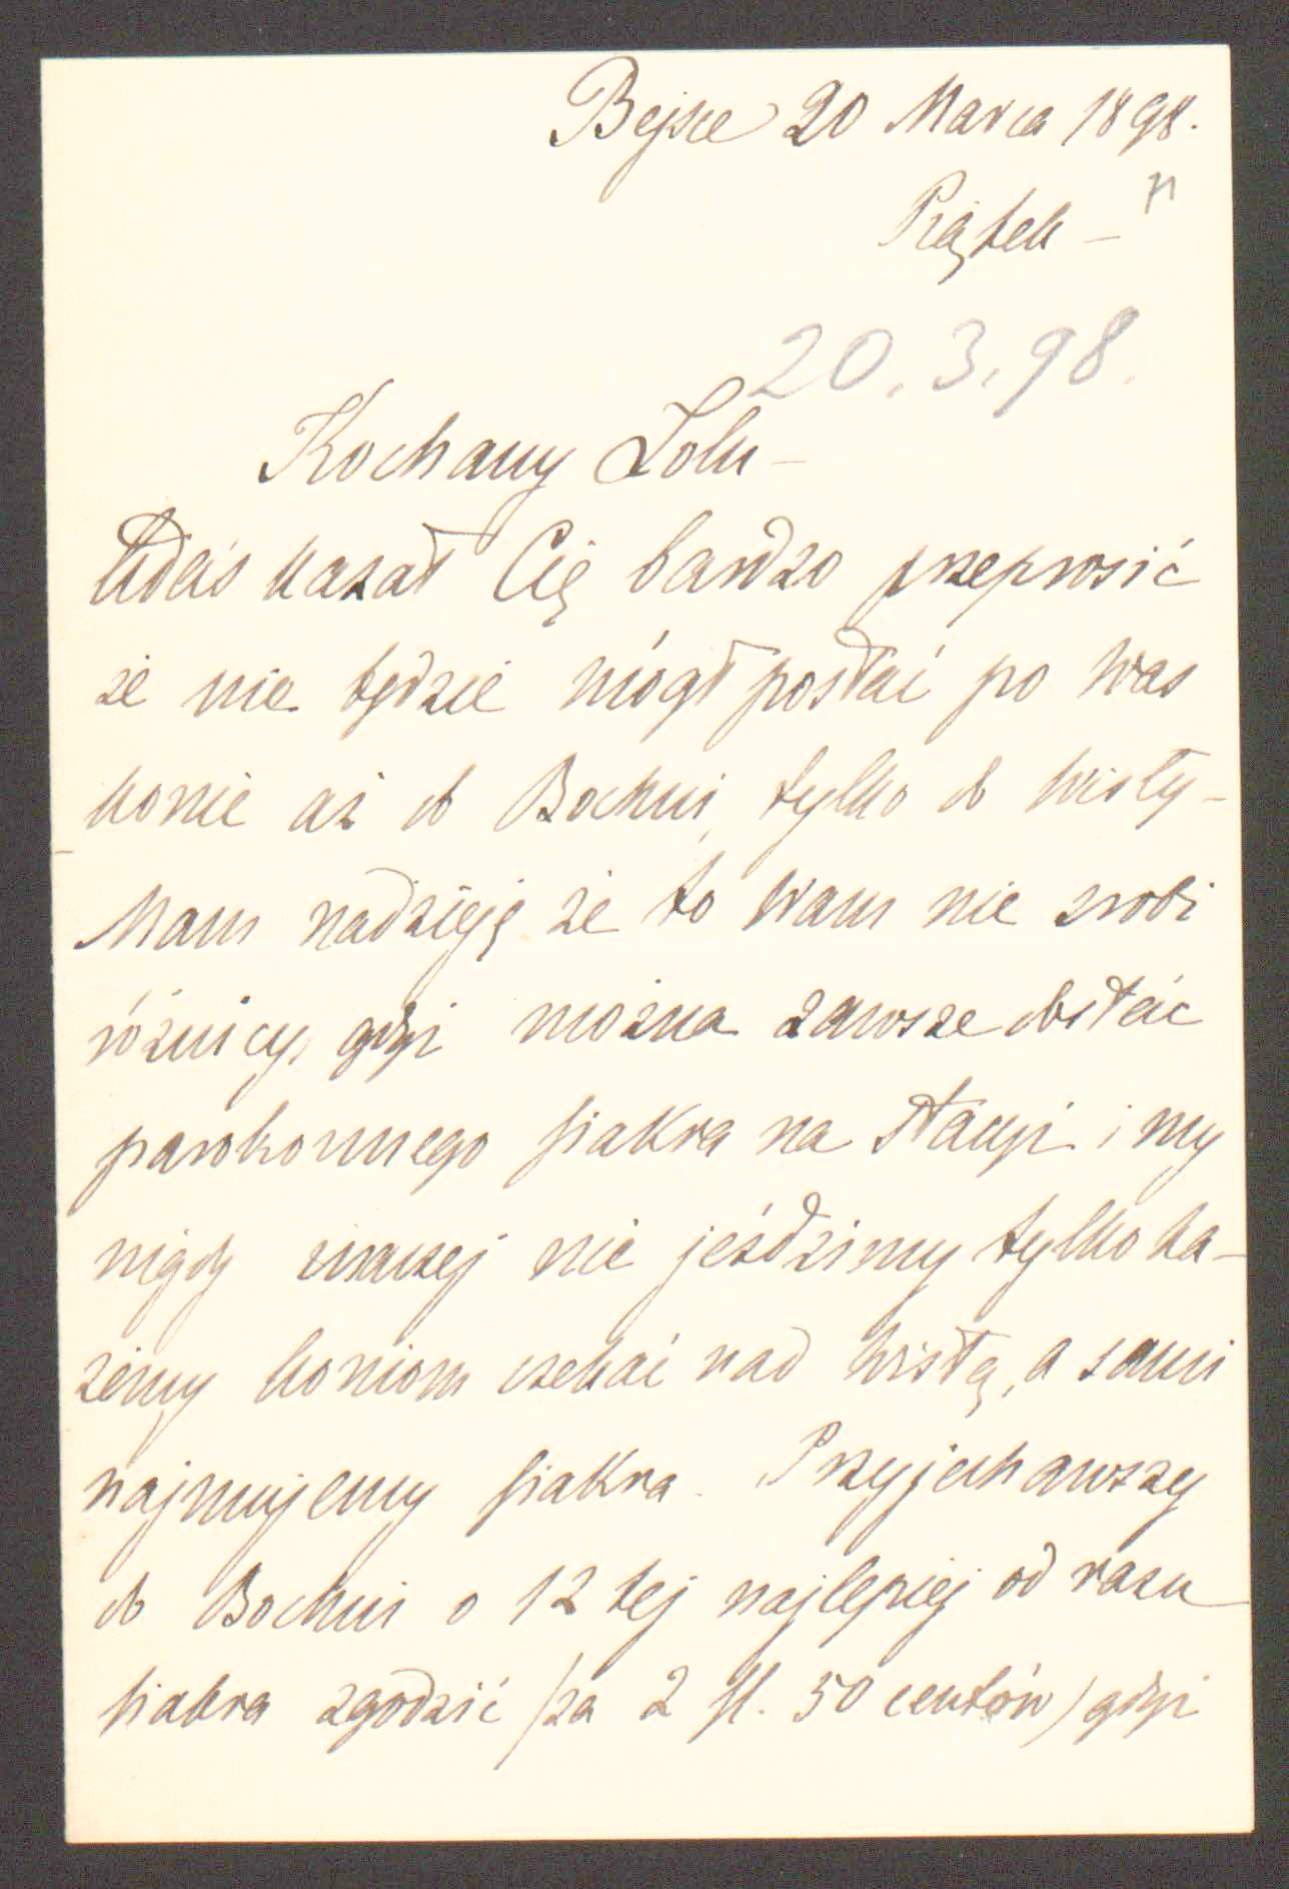 Bejsce 20 Marca 1898.
Piątek —
20.3.98.
Kochany Lolu —
Adaś kazał Cię bardzo przeprosić
że nie będzie mógł posłać po Was
konie aż do Bochni, tylko do Wisły —
Mam nadzieję że to Wam nie zrobi
różnicy, gdyż można zawsze dostać
parokonnego fiakra na stacyi i my
nigdy inaczej nie jeździmy tylko ka-
żemy koniom czekać nad Wisłą, a sami
najmujemy fiakra. Przyjechawszy
do Bochni o 12 tej najlepiej od razu
fiakra zgodzić /za 2 fl. 50 centów/ gdyż